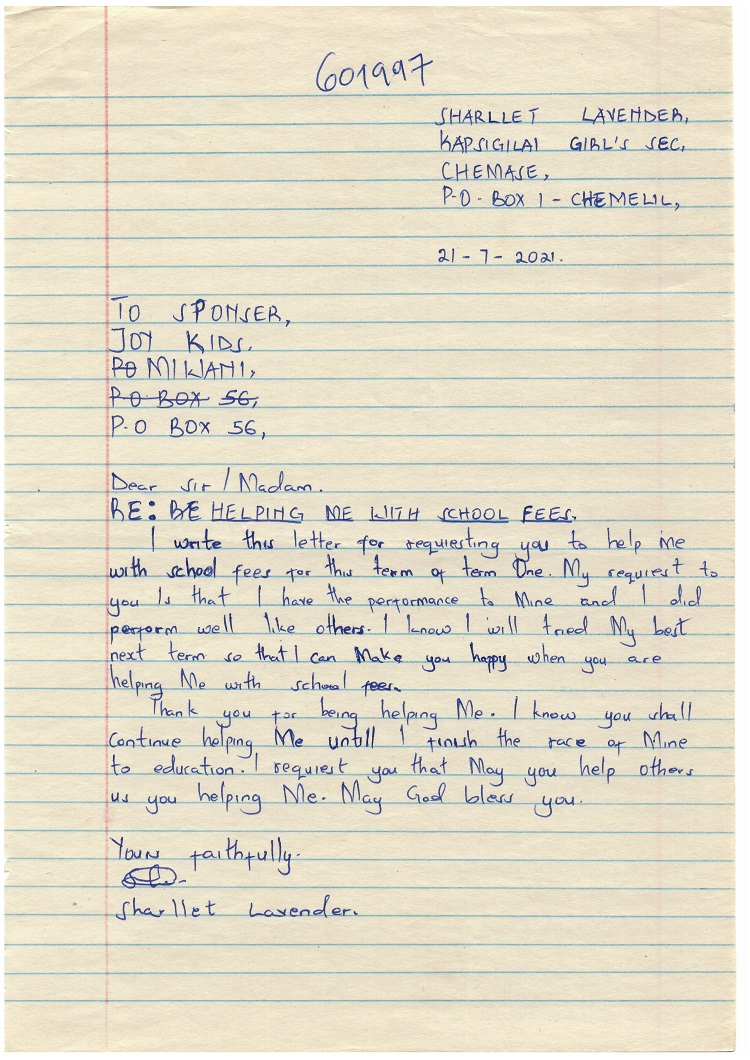 601997
SHARLLET LAVENDER,
KAPSIGILAI GIRL'S SEC,
CHEMASE,
P.O. BOX 1 - CHEMELIL,
21 - 7 - 2021.
TO SPONSER,
JOY KIDS.
PO MIWANI,
P.O. BOX 56,
P.O BOX 56,
Dear Sir / Madam.
RE: BE HELPING ME WITH SCHOOL FEES.
I write this letter for requiesting you to help me
with school fees for this term of term One. My requiest to
you Is that I have the performance to Mine and I did
perform well like others. I know I will tried My best
next term so that I can Make you happy when you are
helping Me with school fees.
Thank you for being helping Me. I know you shall
Continue helping Me untill I finish the race of Mine
to education. I requiest you that May you help others
us you helping Me. May God bless you.
Yours faithfully.
Sharllet Lavender.